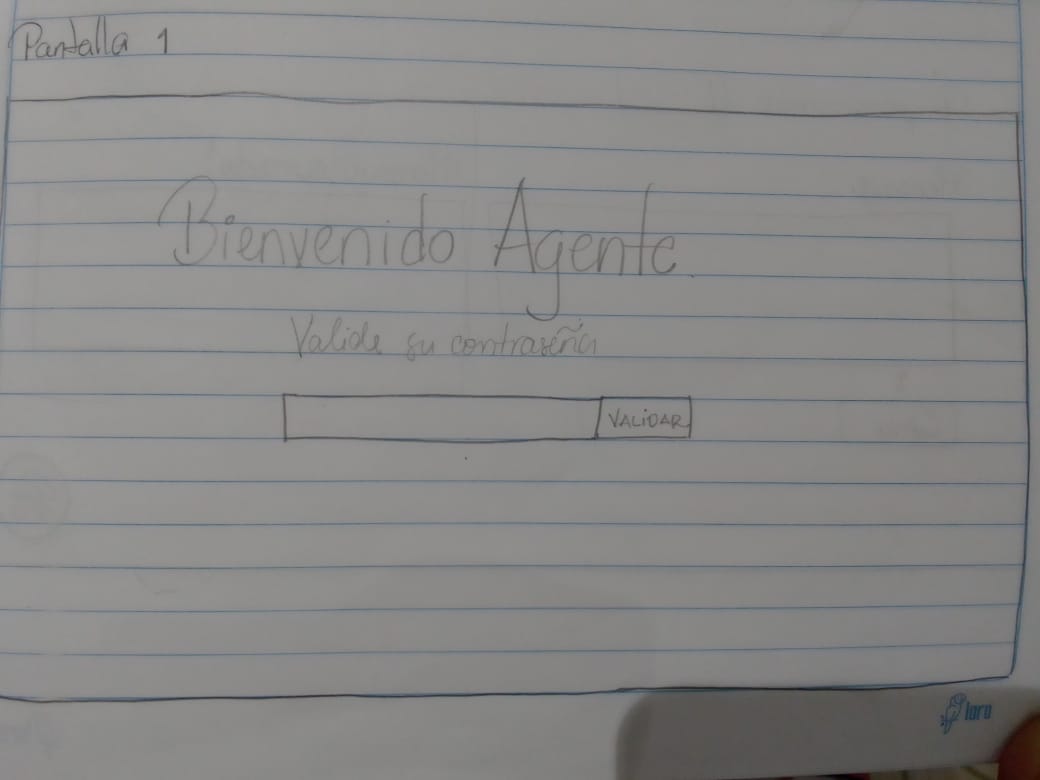 Pantalla 1
Bienvenido Agente.
Valide su contraseña
VALIDAR
loro